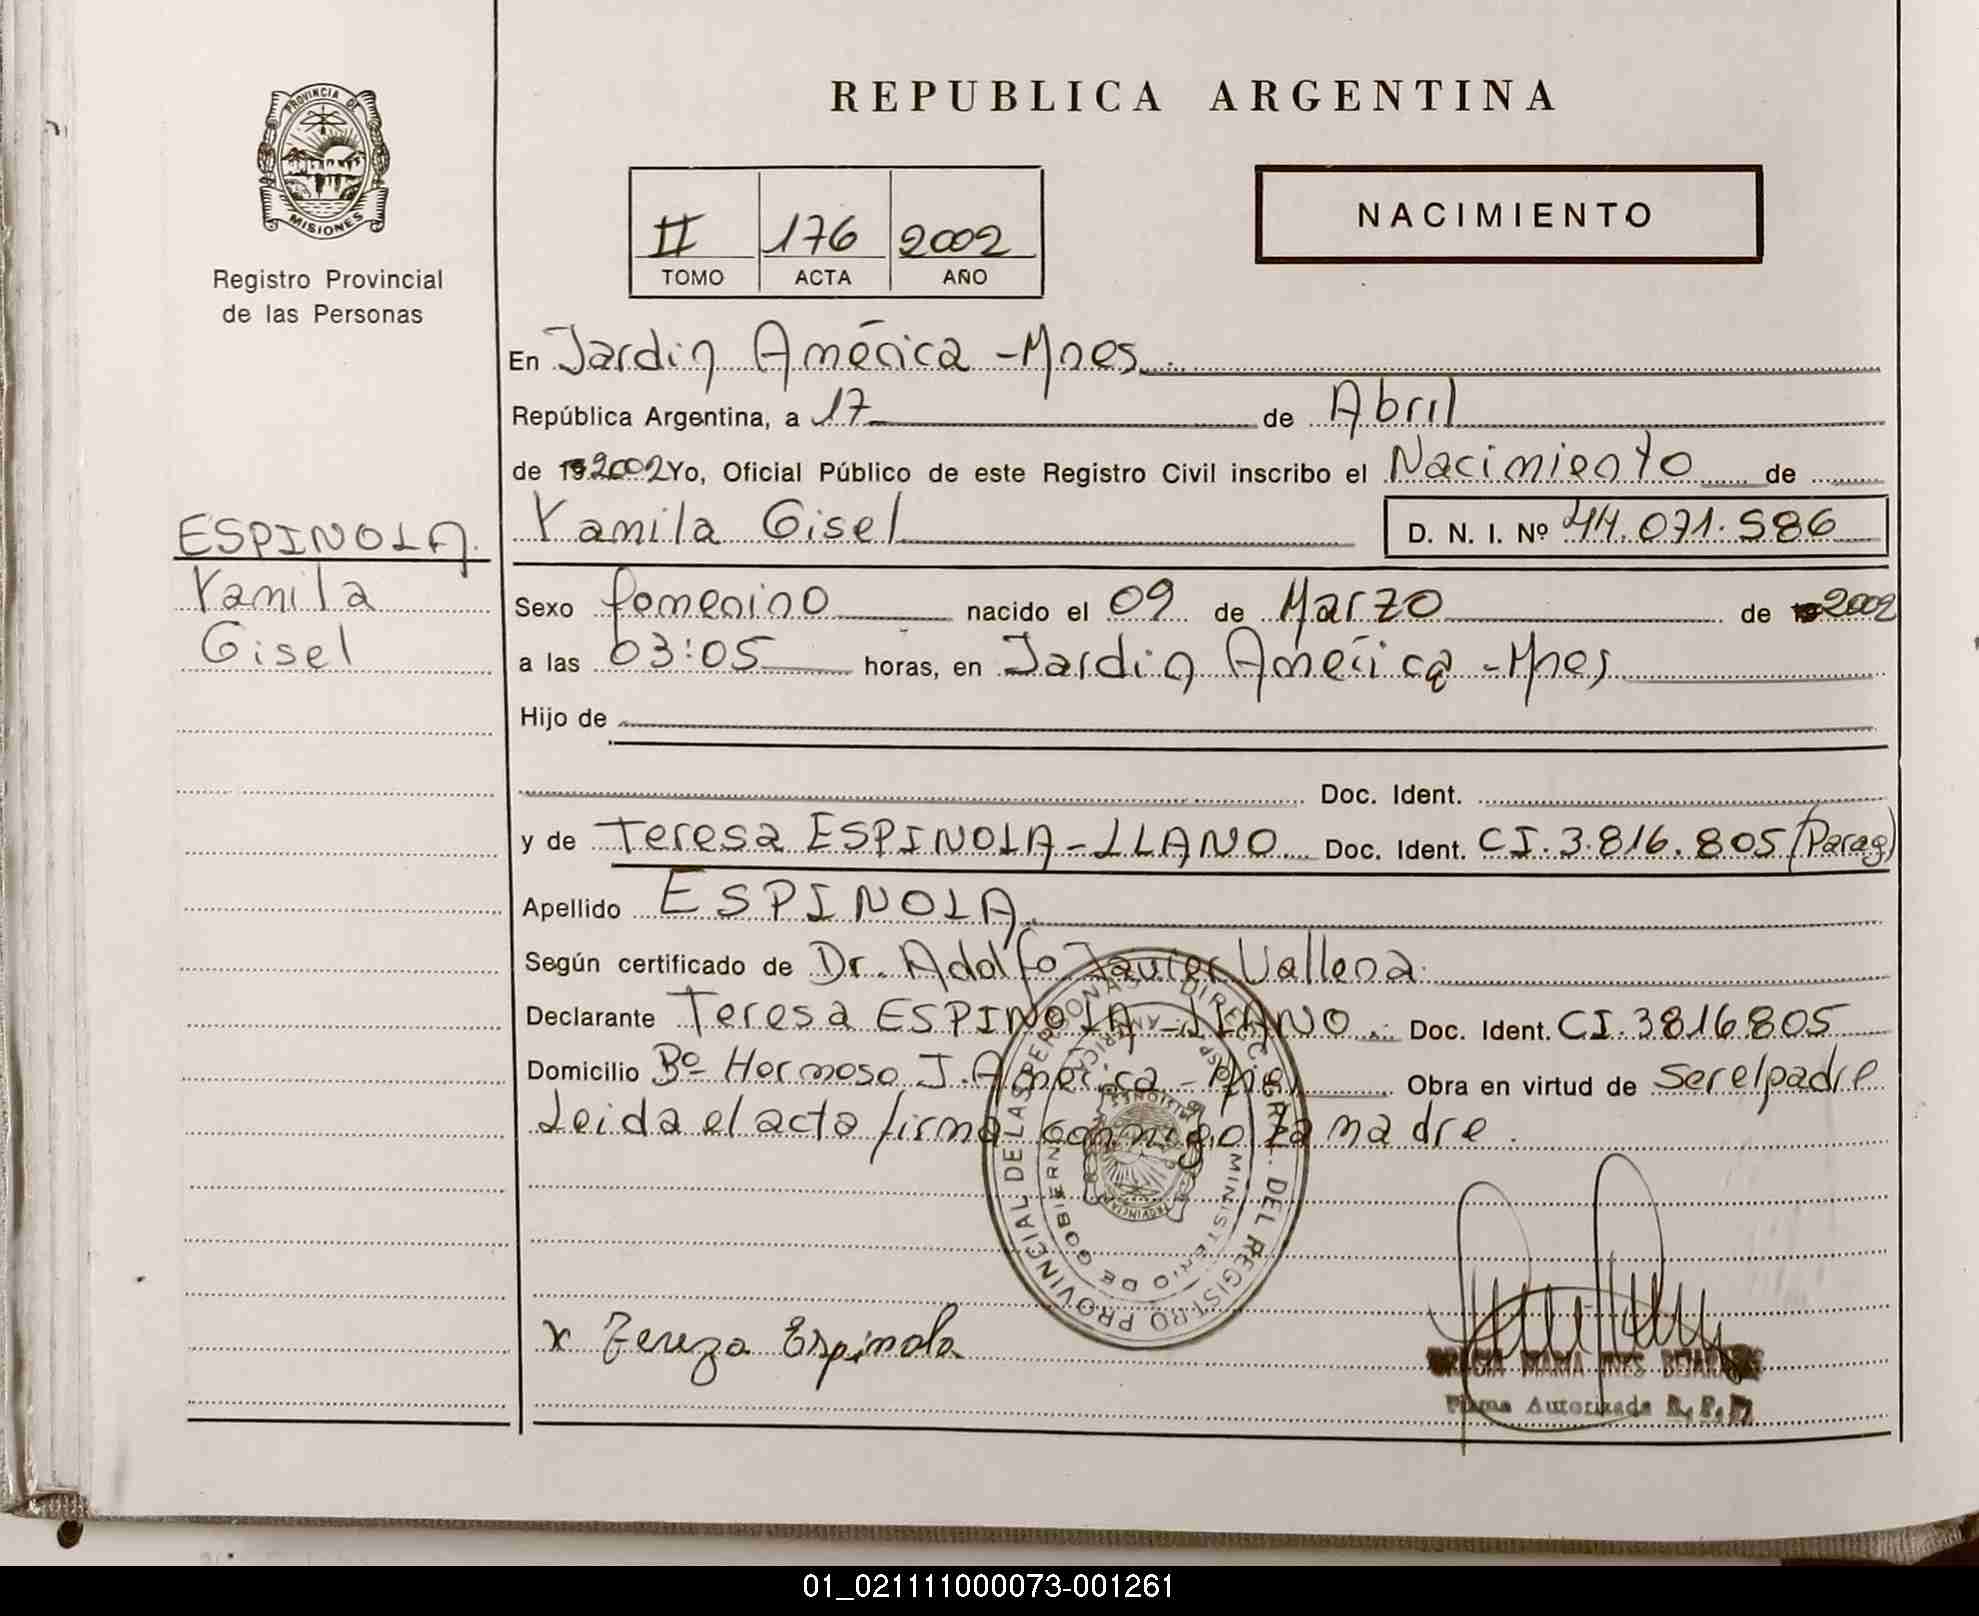 PROVINCIA DE
MISIONES
Registro Provincial
de las Personas
ESPINOLA.
Yamila
Gisel
REPUBLICA ARGENTINA
II 176 2002
TOMO ACTA AÑO
NACIMIENTO
En Jardin América - Mnes.
República Argentina, a 17 de Abril
de 19 2002 Yo, Oficial Público de este Registro Civil inscribo el Nacimiento de
Yamila Gisel D. N. I. Nº 44.071.586
Sexo femenino nacido el 09 de Marzo de 2002
a las 03:05 horas, en Jardin América - Mnes
Hijo de
Doc. Ident.
y de Teresa ESPINOLA - LLANO Doc. Ident. CI. 3.816.805 (Parag)
Apellido ESPINOLA.
Según certificado de Dr. Adolfo Javier
Declarante Teresa ESPINOLA - LLANO. Doc. Ident. CI. 3816805
Domicilio Bº Hermoso J. América - Mnes Obra en virtud de Ser el padre
Leida el acta firma conmigo La madre.
DIRECC. GRAL. DEL REGISTRO PROVINCIAL DE LAS PERSONAS
MINISTERIO DE GOBIERNO
PROVINCIA
MISIONES
x Tereza Espinola
MARIA INES
Firma Autorizada R. P. P.
01_021111000073-001261